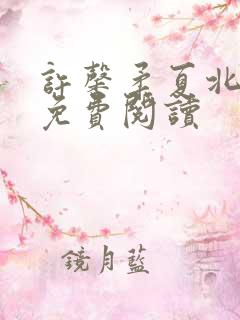 許馨柔夏北
免費閱讀
鏡月藍